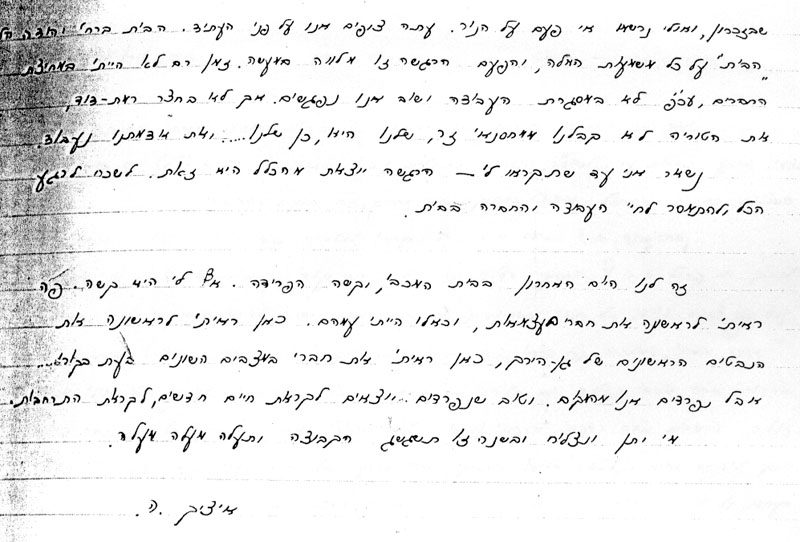 שבזכרון, ואולי נרשמו אי פעם על הניר. עתה צופים אנו על פני העתיד. הבית ברחי יהודה
"הבית" על כל משמעות המלה, והפעם הרגשה זו מלווה במעשה. זמן רב לא הייתי במחיצת
החברים, עכ"פ לא במסגרת העבודה ושוב אנו נפגשים. אך לא בחצר רמת-דוד,
את הטוריה לא קבלנו ממחסנאי זר, שלנו היא, כן שלנו.... ואת אדמתנו נעבוד.
נשאר אני עד שתקראו לי — הרגשה יוצאת מהכלל היא זאת. לשכוח לרגע
הכל, ולהתמסר לחיי העבודה והחברה בבית.
זה לנו היום האחרון בבית המכבי, וקשה הפרידה. אף לי היא קשה. פה
ראיתי לראשונה את חברי בעצמאות, וכאילו הייתי עמהם. כאן ראיתי לראשונה את
הנבטים הראשונים של גן-הירק, כאן ראיתי את חברי במצבים השונים בעת
אבל נפרדים אנו מהמקום. וטוב שנפרדים. יוצאים לקראת חיים חדשים, לקראת התרחבות.
מי יתן ונצליח ובשנה זו תשגשג הקבוצה ותעלה מעלה מעלה.
איציק .ה.